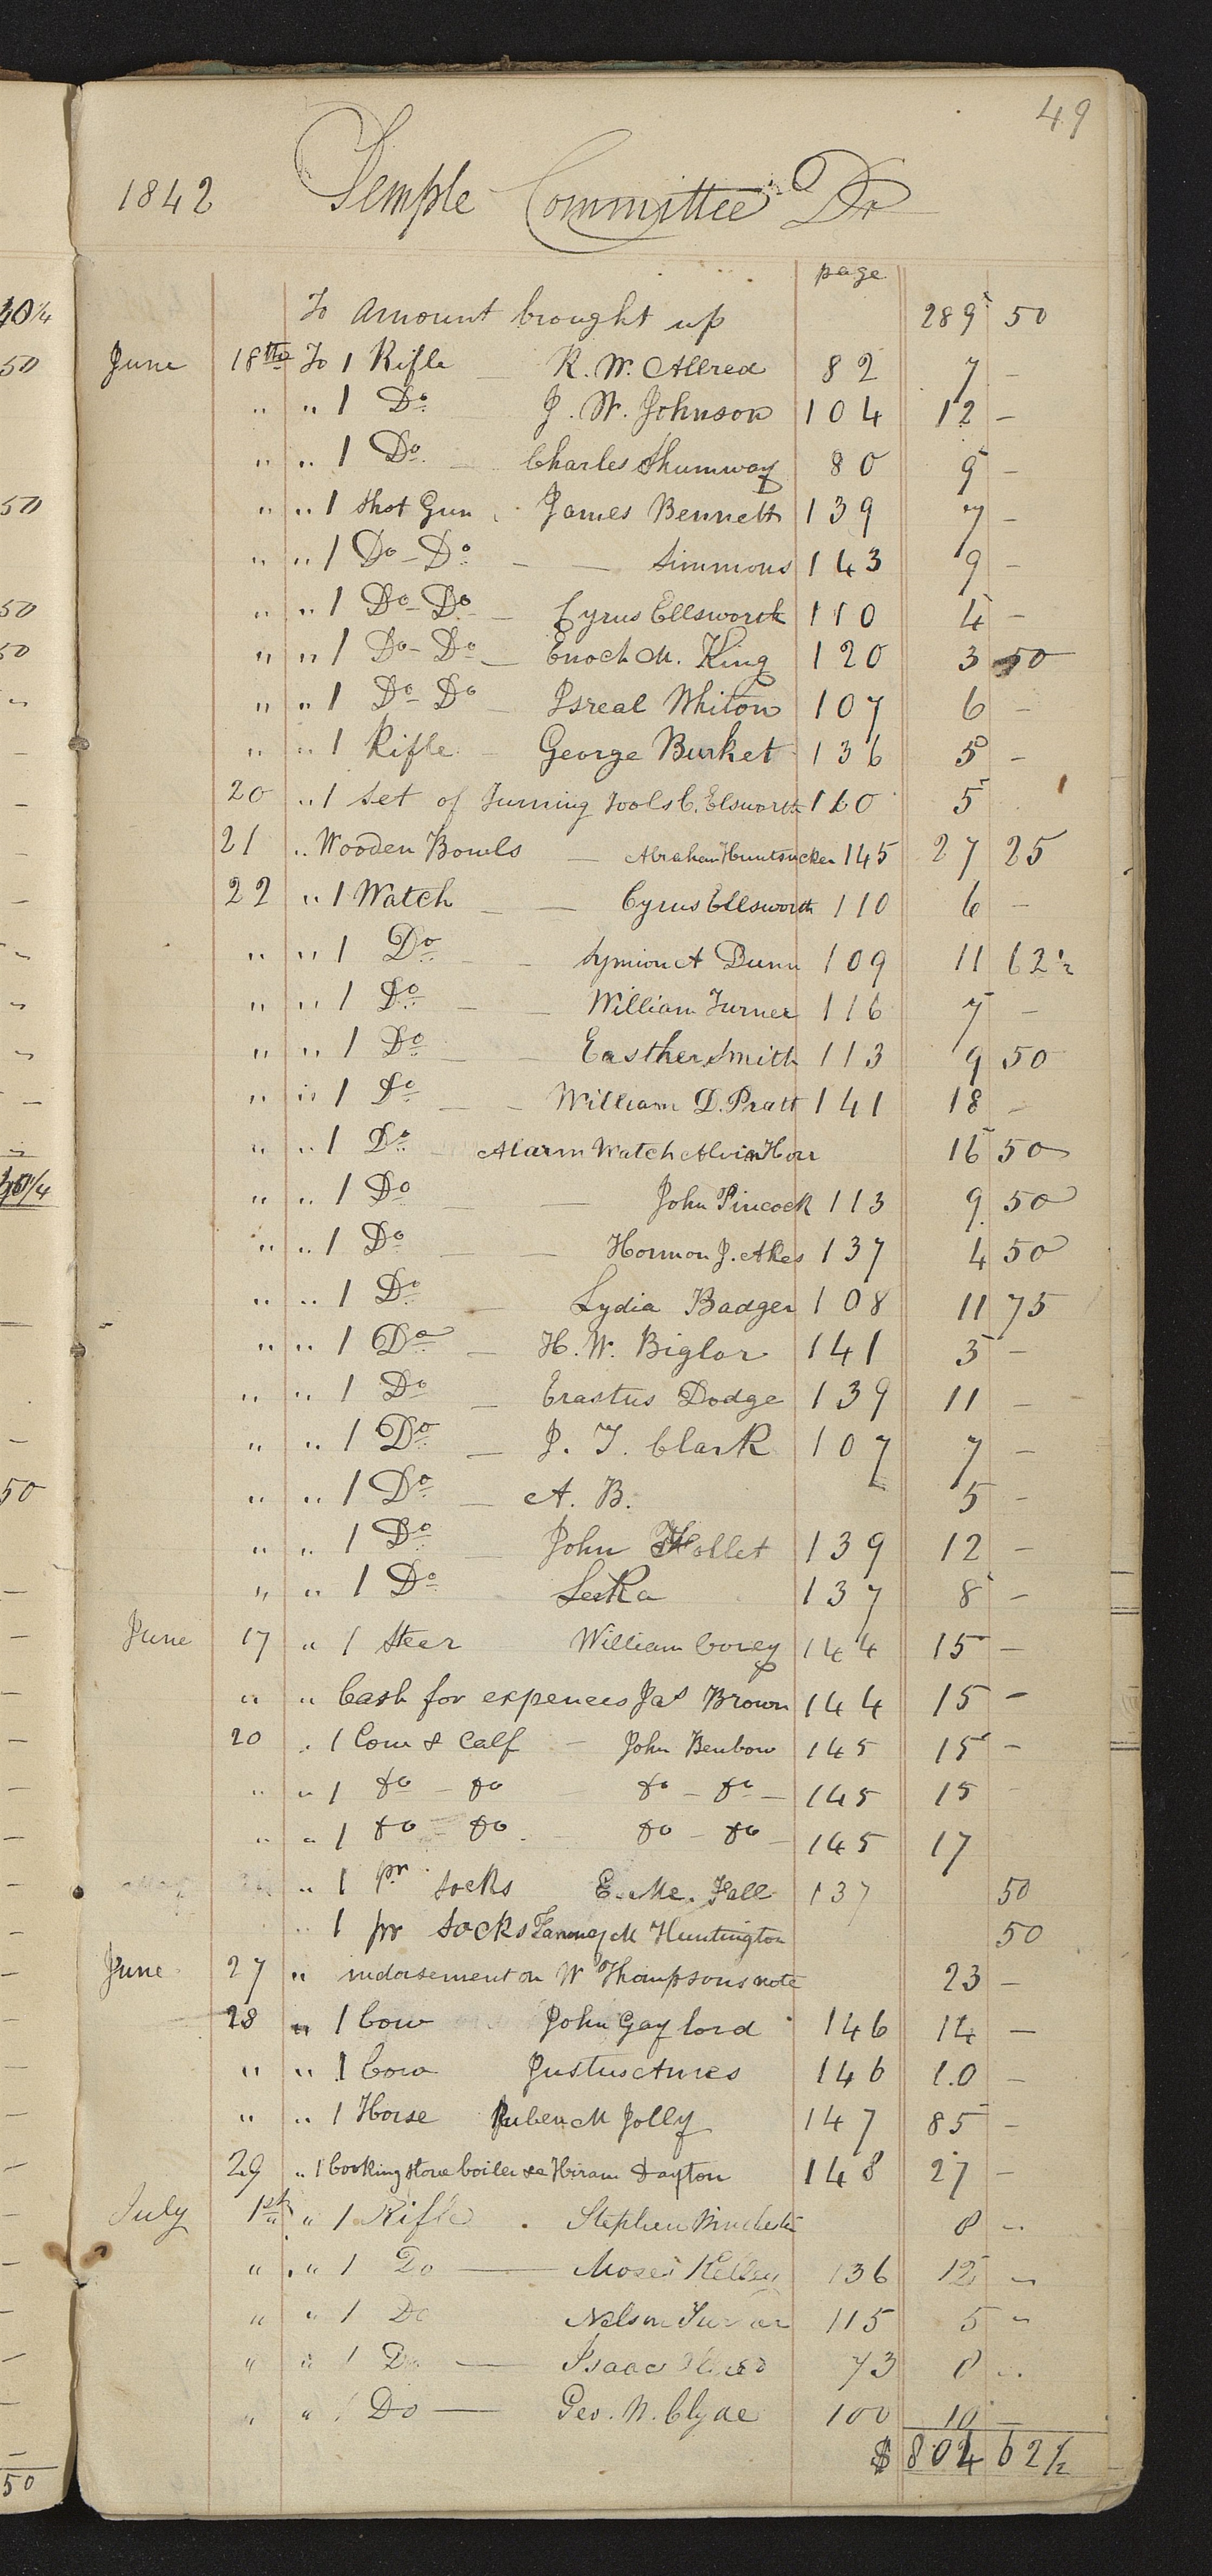 49
1842 Temple Committee Dr
page
To Amount brought up 289 50
June 18th To 1 Rifle R. W. Allred 82 7 –
" " 1 Do J. W. Johnson 104 12 –
" " 1 Do. Charles Shumway 80 9 –
" " 1 Shot Gun James Bennett 139 7 –
" " 1 Do – Do – – Simmons 143 9 –
" " 1 Do – Do – Cyrus Ellsworth 110 4 –
" " 1 Do – Do – Enoch M. King 120 3 50
" " 1 Do – Do – Isreal Whiton 107 6 –
" " 1 Rifle – George Burket 136 5 –
20 " 1 Set of Turning Tools C. Elsworth 110 5
21 " Wooden Bowls – Abraham Huntsucker 145 27 25
22 " 1 Watch – – Cyrus Ellsworth 110 6 –
" " 1 Do – – Symion A Dunn 109 11 62½
" " 1 Do – – William Turner 116 7 –
" " 1 Do – – Easther Smith 113 9 50
" " 1 Do – – William D. Pratt 141 18 –
" " 1 Do – Alarm Watch Alvin Horr 16 50
" " 1 Do – – John Pincock 113 9 50
" " 1 Do – – Hormon J. Akes 137 4 50
" " 1 Do – Lydia Badger 108 11 75
" " 1 Do – H. W. Biglor 141 3 –
" " 1 Do – Erastus Dodge 139 11 –
" " 1 Do – J. T. Clark 107 7 –
" " 1 Do – A. B. 5 –
" " 1 Do – John Hollet 139 12 –
" " 1 Do 137 8 –
June 17 " 1 Steer William Corey 144 15 –
" " Cash for expences Jas Brown 144 15 –
20 " 1 Cow & Calf – John Benbow 145 15 –
" " 1 do – do do – do – 145 15 –
" " 1 do – do – do – do – 145 17
" 1 pr Socks E. Mc. Fall 137 50
" 1 pr Socks M Huntington 50
June 27 " indorsement on W Thompsons note 23 –
28 " 1 Cow John Gaylord 146 14 –
" " 1 Cow Justus Ames 146 10 –
" " 1 Horse Ruben M Jolly 147 85 –
29 " 1 Cooking stove boiler &c Hiram Dayton 148 27 –
July 1st " 1 Rifle Stephen Winchester 8 –
" " 1 Do – Moses Kelley 136 12 –
" " 1 Do Nelson Turner 115 5 –
" " 1 Do – Isaac Allred 73 8 –
" " 1 Do – Geo. W. Clyde 100 10 –
$ 804 62½